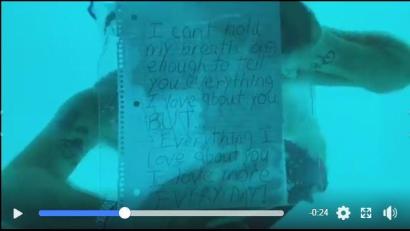 I can't hold
my breath
enough to tell
you everything
I love about you
BUT
Everything I
love about you
I love more
EVERYDAY!
-0:24